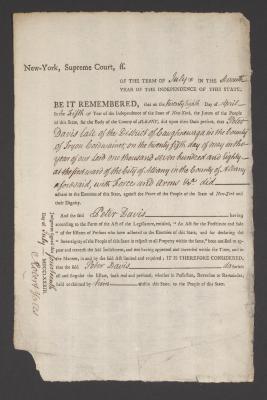 New-York, Supreme Court, ss.
OF THE TERM OF July IN THE Seventh
YEAR OF THE INDEPENDENCE OF THIS STATE.
BE IT REMEMBERED, that on the twenty sixth Day of April
in the fifth Year of the Independence of the State of New-York, the Jurors of the People
of this State, for the Body of the County of ALBANY, did upon their Oath present, that Peter
Davis late of the District of Caughnawaga in the County
of Tryon Cordwainer, on the twenty fifth day of may in the
year of our Lord one thousand seven hundred and eighty
at the first ward of the City of Albany in the County of Albany
aforesaid, with Force and arms &c. did
adhere to the Enemies of this State, against the Peace of the People of the State of New-York and
their Dignity.
And the said Peter Davis having
according to the Form of the Act of the Legislature, entitled, "An Act for the Forfeiture and Sale
"of the Estates of Persons who have adhered to the Enemies of this State, and for declaring the
"Sovereignty of the People of this State in respect to all Property within the same," been notified to ap-
pear and traverse the said Indictment, and not having appeared and traversed within the Time, and in
the Manner, in and by the said Act limited and required; IT IS THEREFORE CONSIDERED,
that the said Peter Davis do forfeit
all and singular the Estate, both real and personal, whether in Possession, Reversion or Remainder,
held or claimed by him within this State, to the People of this State.
Judgment signed this fourteenth
Day of July MDCCLXXXIII.